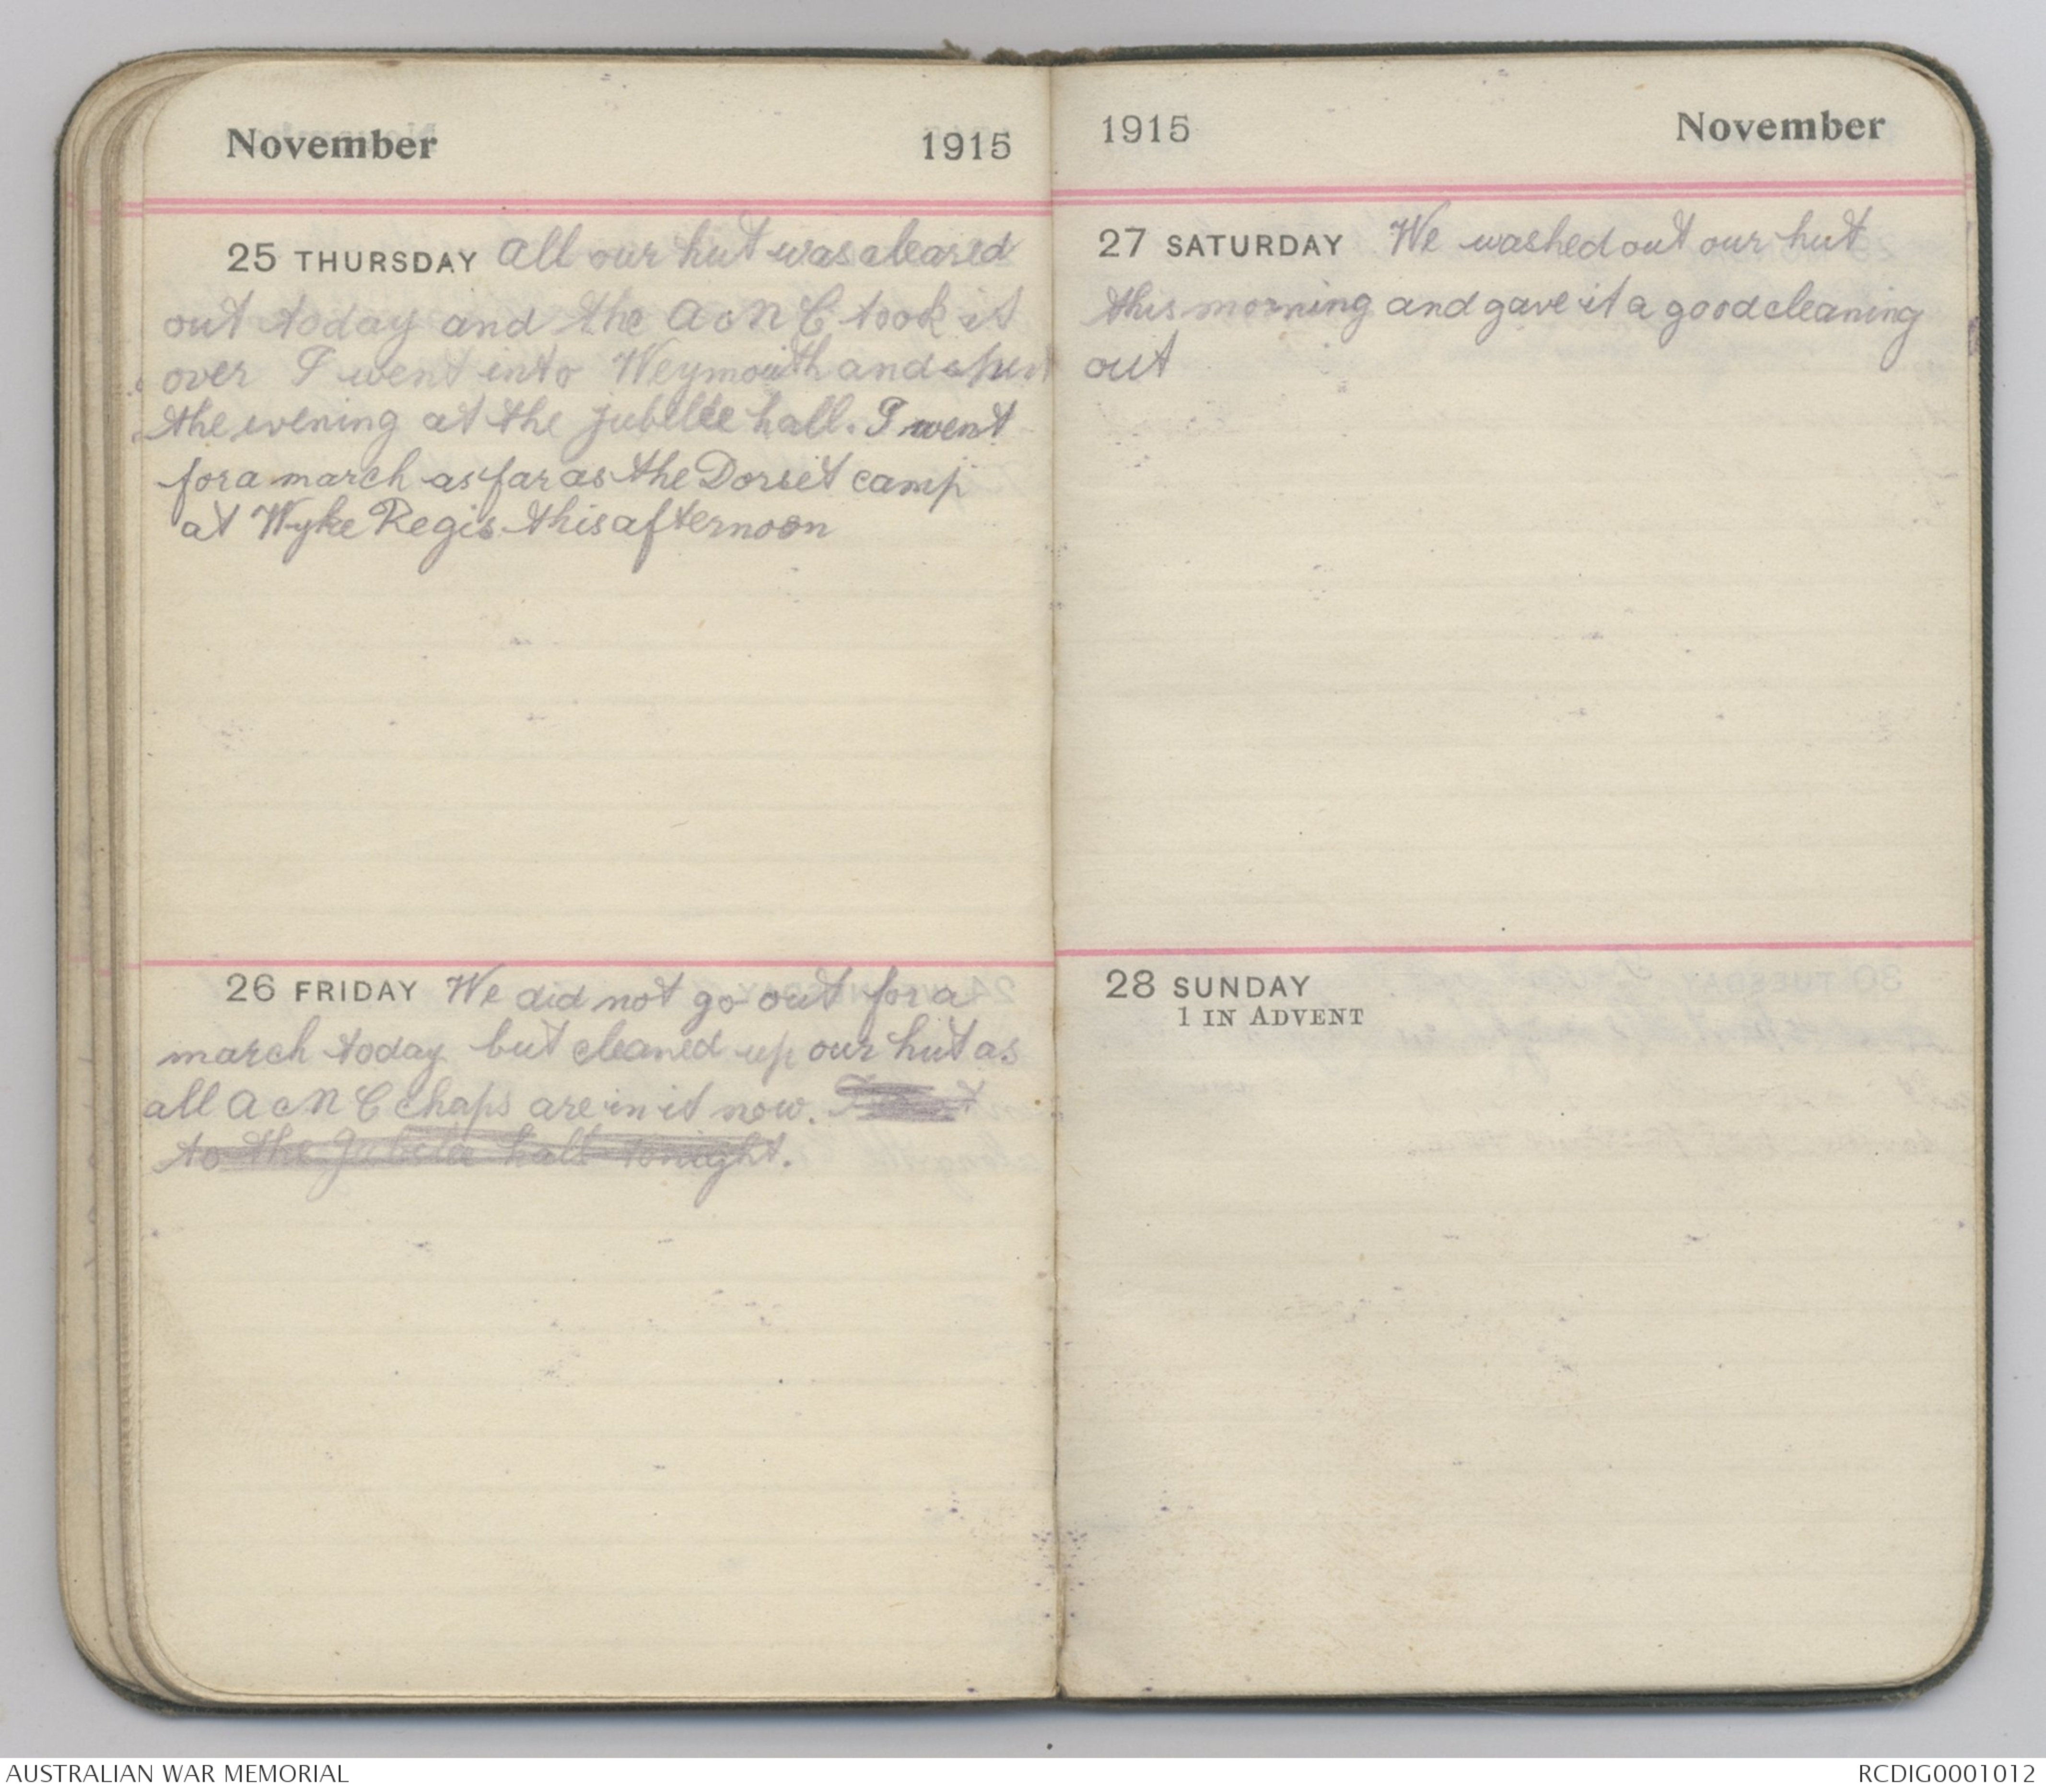 November 1915
25 THURSDAY All our hut was cleared
out today and the A o N C took it
over I went into Weymouth and spent
the evening at the jubilee hall. I went
for a march as far as the Dorset camp
at Wyke Regis this afternoon
26 FRIDAY We did not go out for a
march today but cleaned up our hut as
all A o N C chaps are in it now.
to the Jubilee hall tonight.
1915 November
27 SATURDAY We washed out our hut
this morning and gave it a good cleaning
out
28 SUNDAY
1 IN ADVENT
AUSTRALIAN WAR MEMORIAL
RCDIG0001012